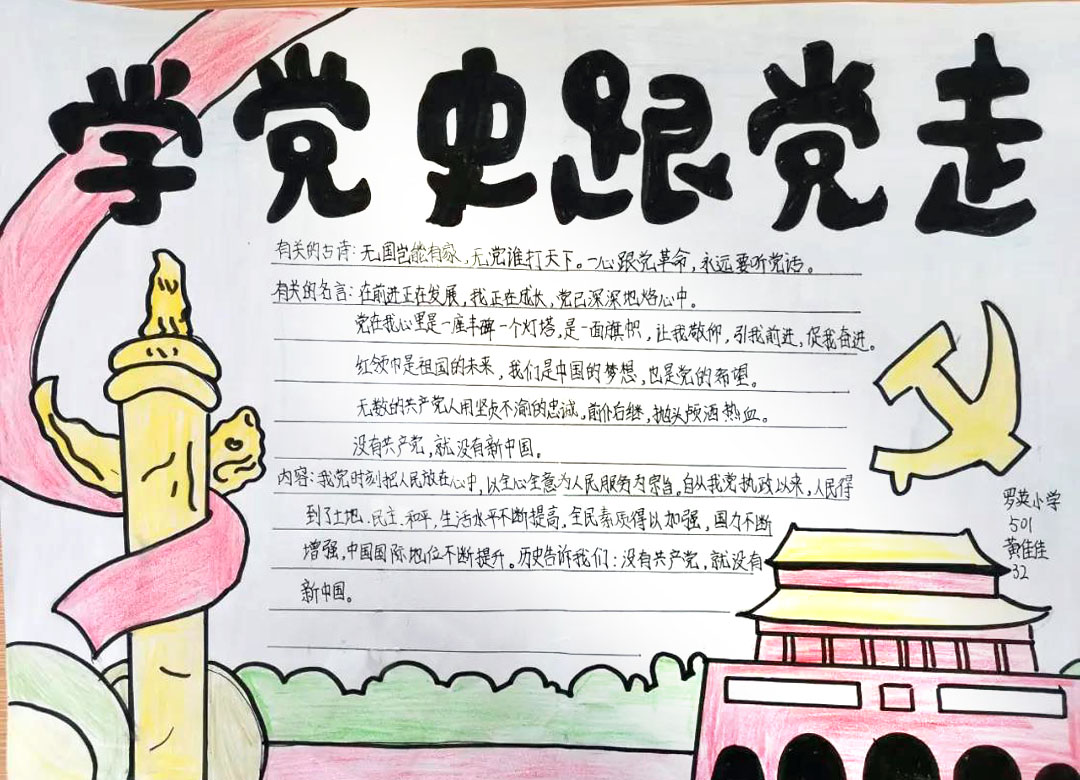 学党史跟党走
有关的古诗：无国岂能有家，无党谁打天下。一心跟党革命，永远要听党话。
有关的名言：在前进正在发展，我正在成长，党已深深地烙心中。
党在我心里是一座丰碑一个灯塔，是一面旗帜，让我敬仰，引我前进，促我奋进。
红领巾是祖国的未来，我们是中国的梦想，也是党的希望。
无数的共产党人用坚贞不渝的忠诚，前仆后继，抛头颅洒热血。
没有共产党，就没有新中国。
内容：我党时刻把人民放在心中，以全心全意为人民服务为宗旨。自从我党执政以来，人民得
到了土地、民主、和平，生活水平不断提高，全民素质得以加强，国力不断
增强，中国国际地位不断提升。历史告诉我们：没有共产党，就没有
新中国。
罗英小学
501
黄佳佳
32